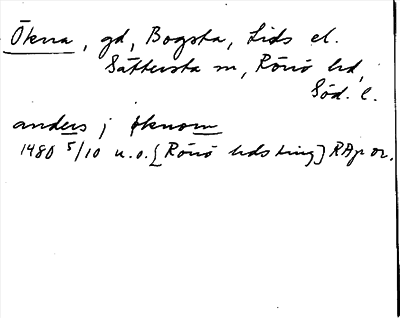 Ökna, gd, Bogsta, Lids el.
Sättersta sn, Rönö hd,
Söd. l.
anders j øknom
1480 5/10 u.o. [Rönö hds ting] RAp or.